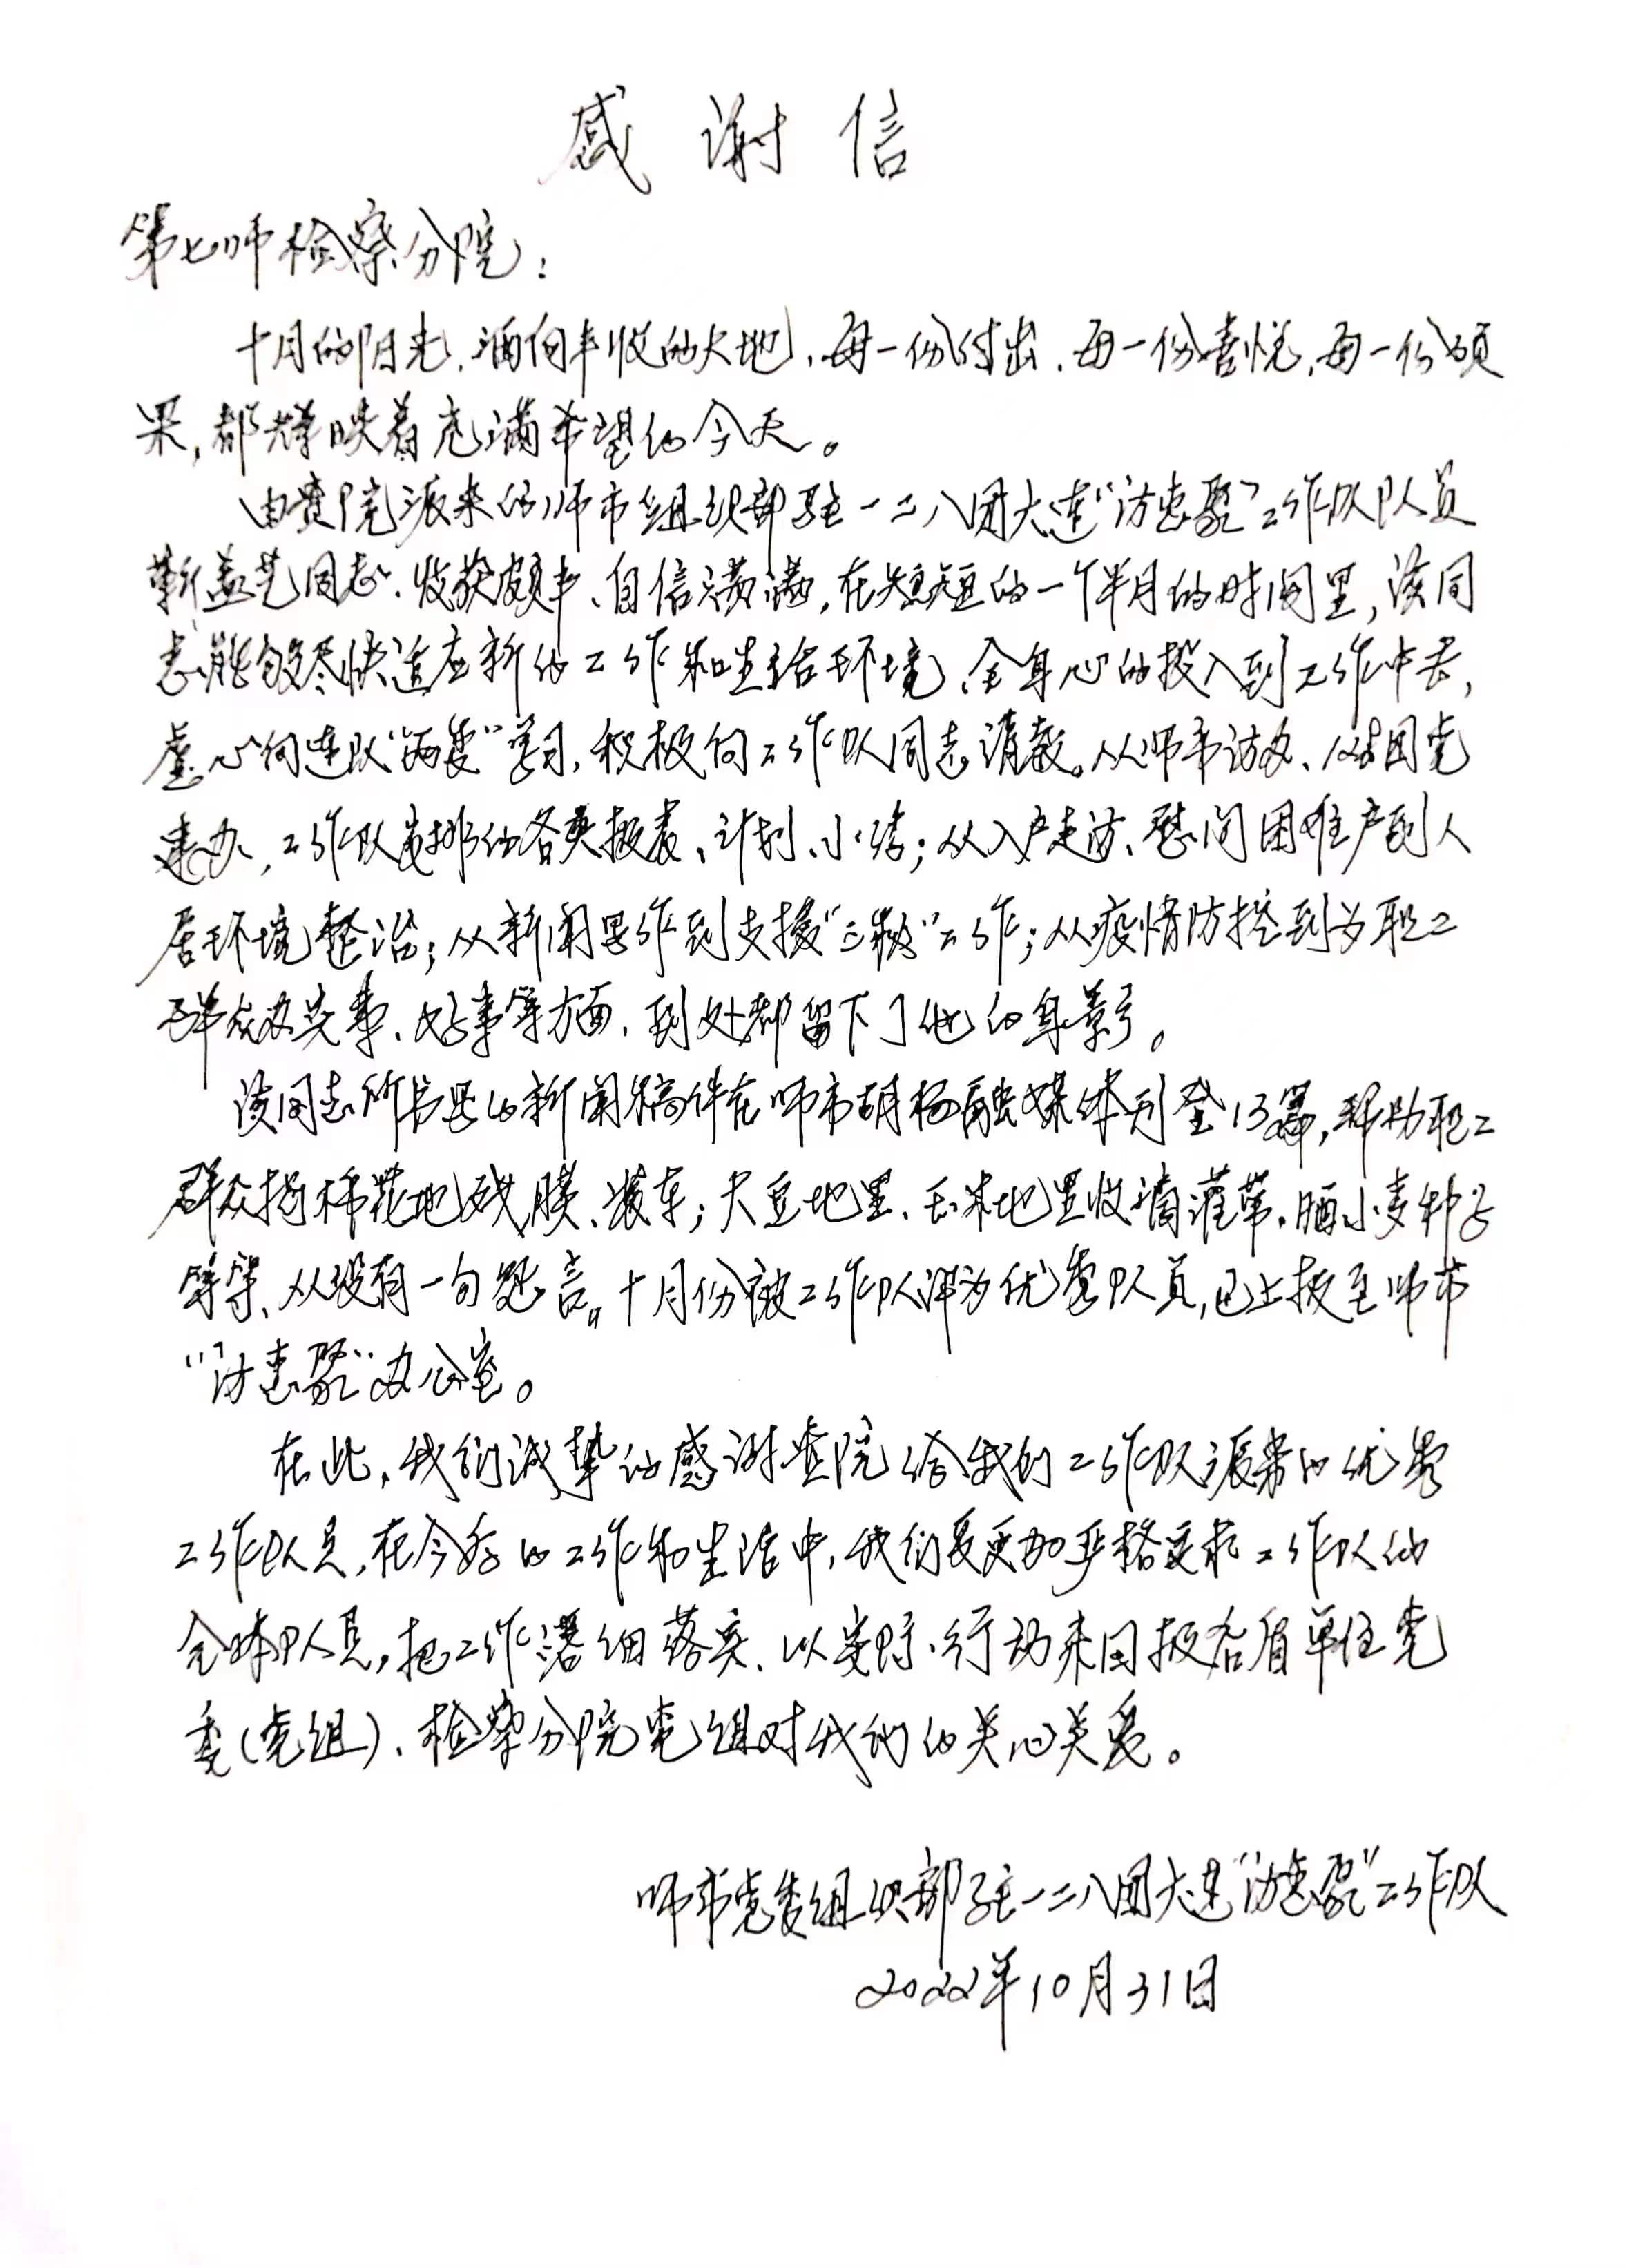 感谢信
第七师检察分院：
十月的阳光，洒向丰收的大地，每一份付出，每一份喜悦，每一份硕
果，都辉映着充满希望的今天。
由贵院派来的师市组织部驻一二八团六连“访惠聚”工作队队员
靳孟艺同志，收获颇丰、自信满满，在短短的一个半月的时间里，该同
志能够尽快适应新的工作和生活环境，全身心的投入到工作中去，
虚心向连队“两委”学习，积极向工作队同志请教。从师市访办、128团党
建办，工作队安排的各类报表、计划、小结；从入户走访、慰问困难户到人
居环境整治；从新闻写作到支援“三秋”工作；从疫情防控到为职工
群众办实事、好事等方面，到处都留下了他的身影。
该同志所书写的新闻稿件在师市胡杨融媒体刊登13篇，帮助职工
群众捡棉花地残膜、装车；大豆地里、玉米地里收滴灌带，晒小麦种子
等等、从没有一句怨言。十月份被工作队评为优秀队员，已上报至师市
“访惠聚”办公室。
在此，我们诚挚的感谢贵院给我们工作队派来的优秀
工作队员，在今后的工作和生活中，我们要更加严格要求工作队的
全体队员，把工作落细落实，以实际行动来回报各后盾单位党
委（党组）、检察分院党组对我们的关心关爱。
师市党委组织部驻一二八团六连“访惠聚”工作队
2022年10月31日